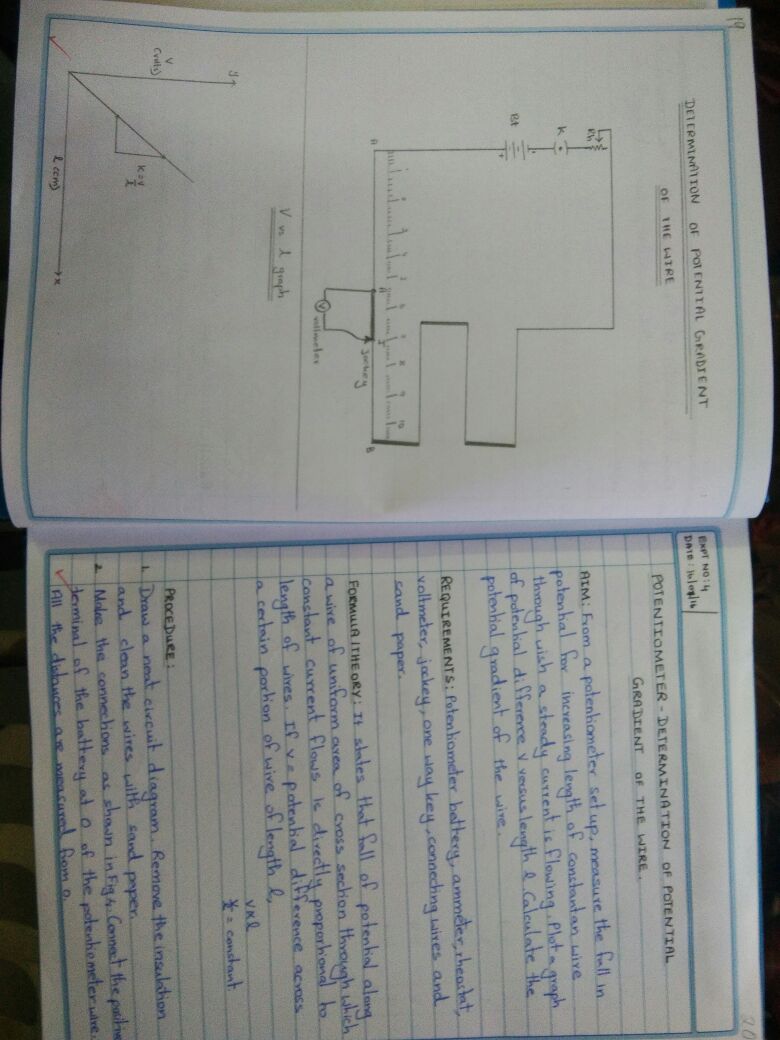 19
DETERMINATION OF POTENTIAL GRADIENT
OF THE WIRE
Rh
K
Bt
+
-
A
1 2 3 4 5 6 7 8 9 10
A
J
B
jockey
V
voltmeter
V vs l graph
y
V
(volts)
K = V
l
l (cm)
x
20
EXPT NO: 4
DATE: 16/08/16
POTENTIOMETER - DETERMINATION OF POTENTIAL
GRADIENT OF THE WIRE.
AIM: From a potentiometer set up, measure the fall in
potential for increasing length of constantan wire
through wish a steady current is flowing. Plot a graph
of potential difference V versus length l. Calculate the
potential gradient of the wire.
REQUIREMENTS: Potentiometer battery, ammeter, rheostat,
voltmeter, jockey, one way key, connecting wires and
sand paper.
FORMULA/THEORY: It states that fall of potential along
a wire of uniform area of cross section through which
constant current flows is directly proportional to
length of wires. If V = potential difference across
a certain portion of wire of length l,
V ∝ l
V/l = constant
PROCEDURE:
1. Draw a neat circuit diagram. Remove the insulation
and clean the wires with sand paper.
2. Make the connections as shown in Fig 4. Connect the positive
terminal of the battery at 0 of the potentiometer wire.
All the distances are measured from 0.